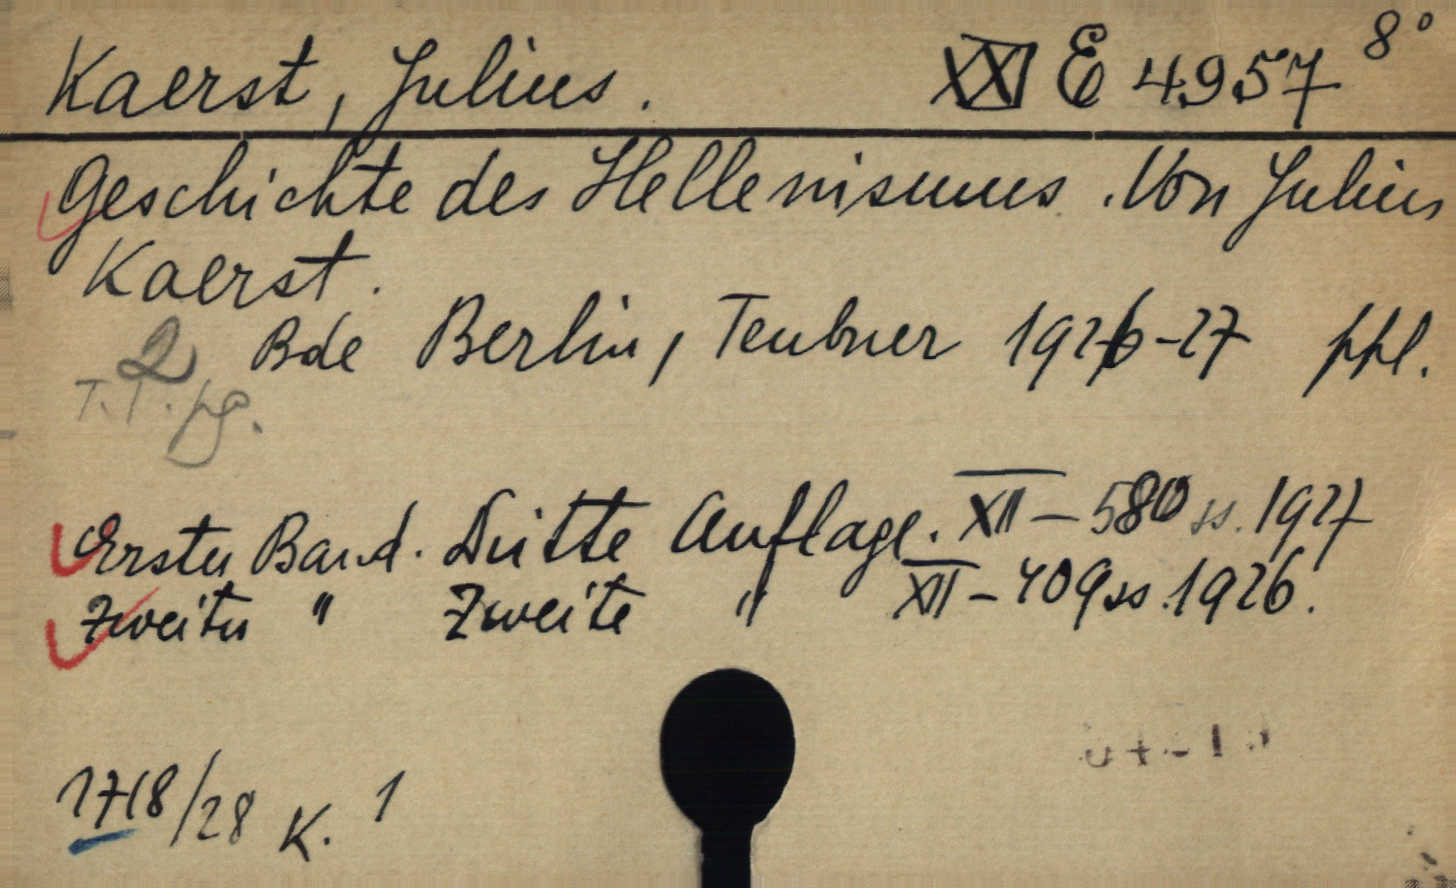 Kaerst, Julius. XXI E 4957 8°
Geschichte des Hellenismus. Von Julius
Kaerst.
2 Bde Berlin, Teubner 1926-27 ppl.
T. T. pg.
Erster Band. Dritte Auflage. XII - 580 ss. 1927
Zweiter " Zweite " XII - 409 ss. 1926.
1718/28 K. 1